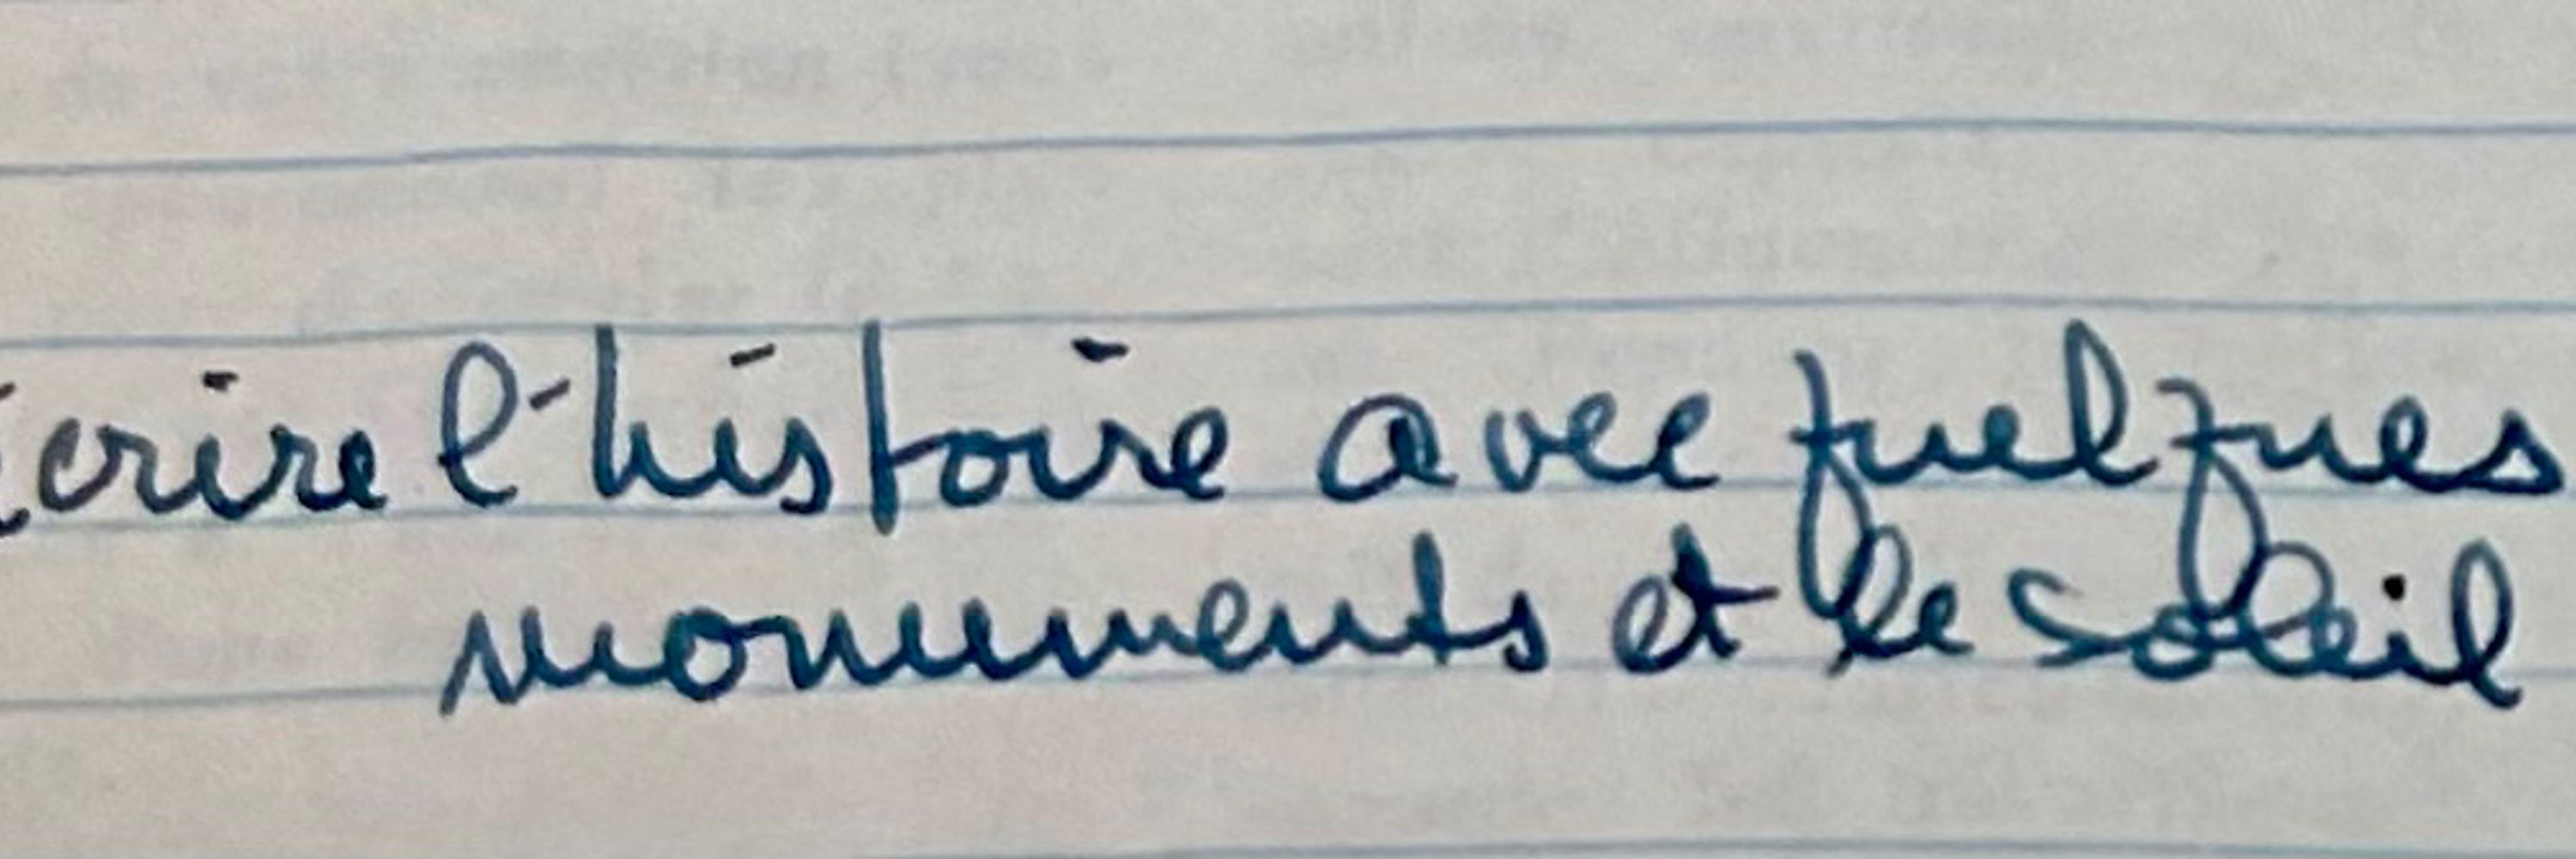 écrire l'histoire avec quelques
monuments et le soleil